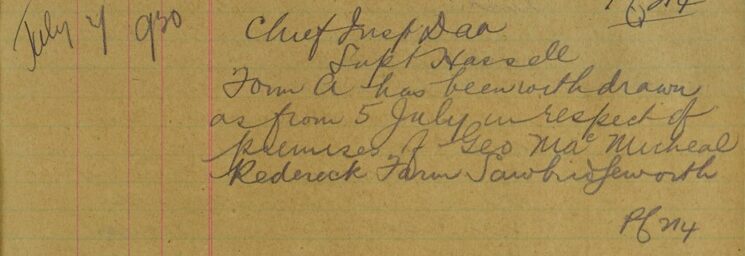 July 4 930 Chief Insp Daa
Supt Hassell
Form A has been withdrawn
as from 5 July in respect of
premises of Geo Mac Micheal
Redrick Farm Sawbridgeworth